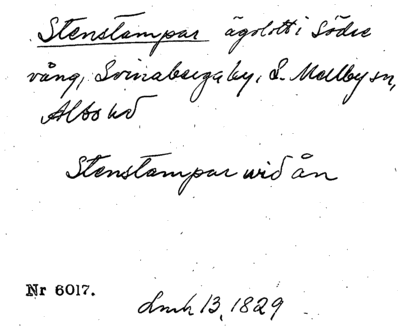 Stenstampar ägolott i Södre
vång, Svinaberga by, S. Mellby sn,
Albo hd
Stenstampar wid ån
Nr 6017.
Lmk 13, 1829